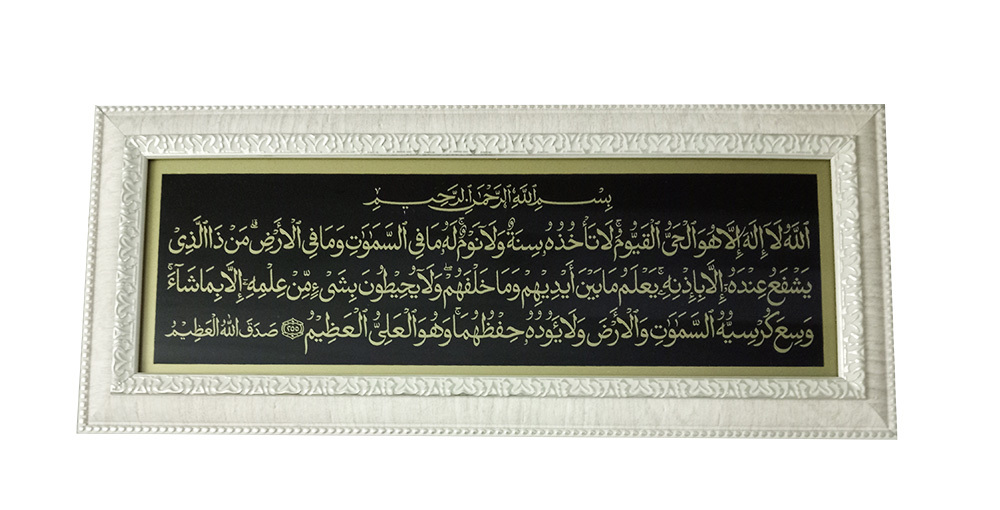 بِسْمِ اللَّهِ الرَّحْمَٰنِ الرَّحِيمِ
اللَّهُ لَا إِلَٰهَ إِلَّا هُوَ الْحَيُّ الْقَيُّومُ ۚ لَا تَأْخُذُهُ سِنَةٌ وَلَا نَوْمٌ ۚ لَهُ مَا فِي السَّمَٰوَٰتِ وَمَا فِي الْأَرْضِ ۗ مَنْ ذَا الَّذِي
يَشْفَعُ عِنْدَهُ إِلَّا بِإِذْنِهِ ۚ يَعْلَمُ مَا بَيْنَ أَيْدِيهِمْ وَمَا خَلْفَهُمْ ۖ وَلَا يُحِيطُونَ بِشَيْءٍ مِّنْ عِلْمِهِ إِلَّا بِمَا شَاءَ ۚ
وَسِعَ كُرْسِيُّهُ السَّمَٰوَٰتِ وَالْأَرْضَ ۖ وَلَا يَئُودُهُ حِفْظُهُمَا ۚ وَهُوَ الْعَلِيُّ الْعَظِيمُ ﴿٢٥٥﴾ صَدَقَ اللهُ الْعَظِيمُ